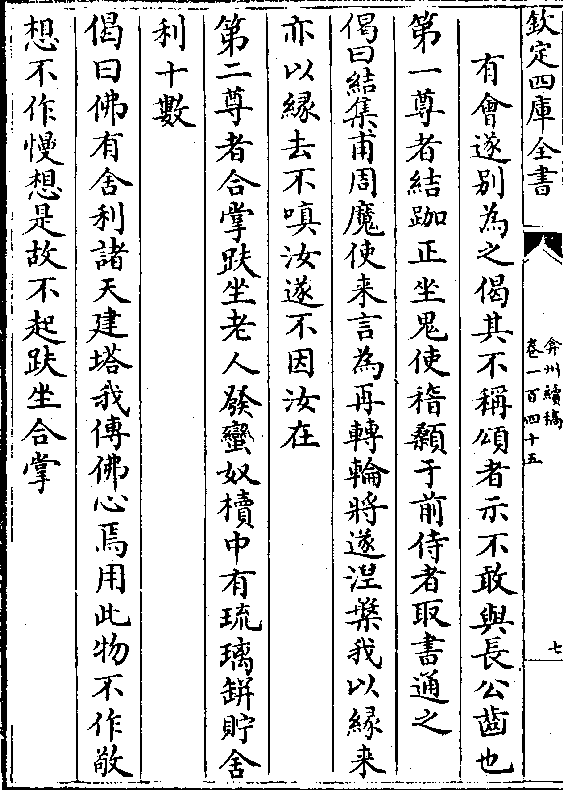 欽定四庫全書
弇州續稿
卷一百四十五
七
有會遂別為之偈其不稱頌者示不敢與長公齒也
第一尊者結跏正坐鬼使稽顙于前侍者取書通之
偈曰結集甫周魔使来言為再轉輪將遂涅槃我以緣来
亦以緣去不嗔汝遂不因汝在
第二尊者合掌趺坐老人發蠻奴櫝中有琉璃缾貯舍
利十數
偈曰佛有舍利諸天建塔我傳佛心焉用此物不作敬
想不作慢想是故不起趺坐合掌